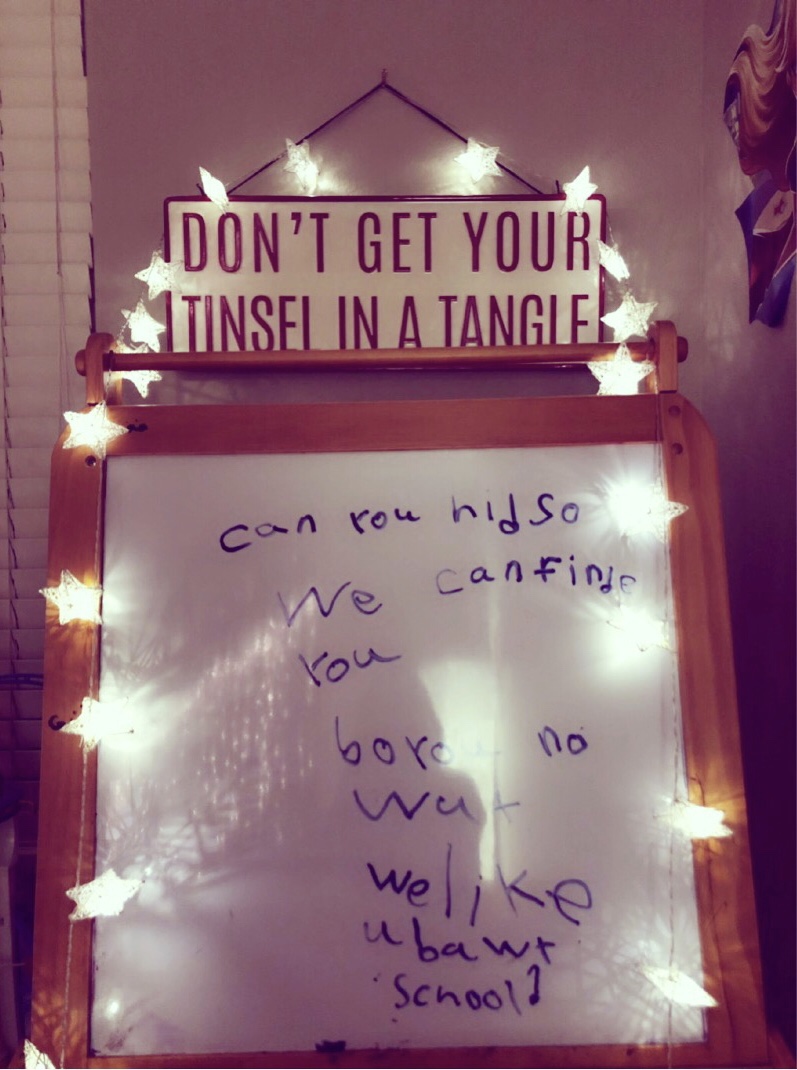 DON'T GET YOUR
TINSEL IN A TANGLE
can rou hid so
We can finde
rou
no
Wut
we like
ubawt
school?